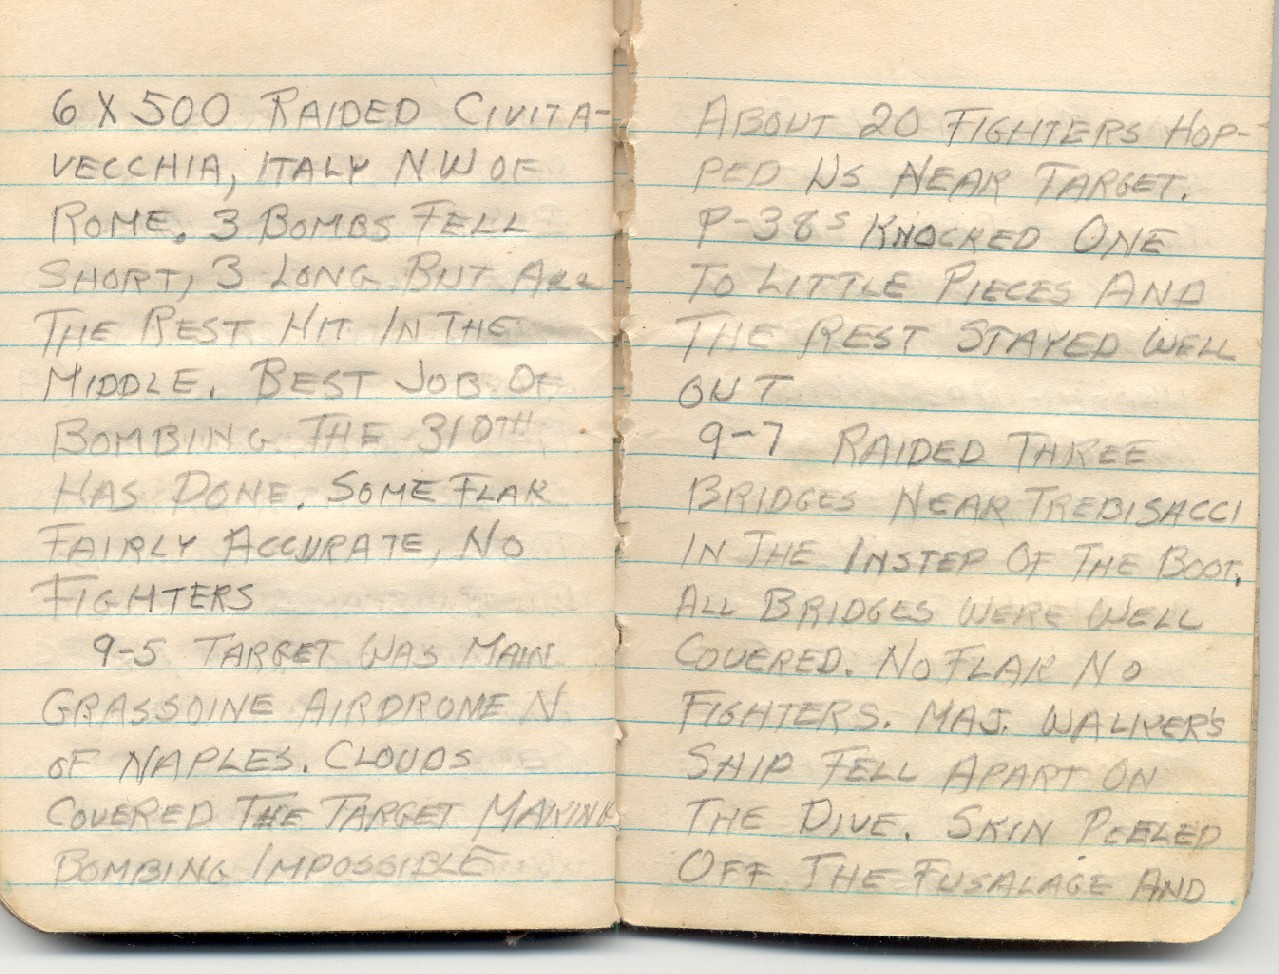 6 X 500 RAIDED CIVITA-
VECCHIA, ITALY NW OF
ROME. 3 BOMBS FELL
SHORT, 3 LONG BUT ALL
THE REST HIT IN THE
MIDDLE. BEST JOB OF
BOMBING THE 310TH
HAS DONE. SOME FLAK
FAIRLY ACCURATE, NO
FIGHTERS
9-5 TARGET WAS MAIN
GRASSOINE AIRDROME N.
OF NAPLES. CLOUDS
COVERED THE TARGET MAKING
BOMBING IMPOSSIBLE
ABOUT 20 FIGHTERS HOP-
PED US NEAR TARGET.
P-38S KNOCKED ONE
TO LITTLE PIECES AND
THE REST STAYED WELL
OUT
9-7 RAIDED THREE
BRIDGES NEAR TREBISACCI
IN THE INSTEP OF THE BOOT.
ALL BRIDGES WERE WELL
COVERED. NO FLAK NO
FIGHTERS. MAJ. WALKER'S
SHIP FELL APART ON
THE DIVE. SKIN PEELED
OFF THE FUSALAGE AND